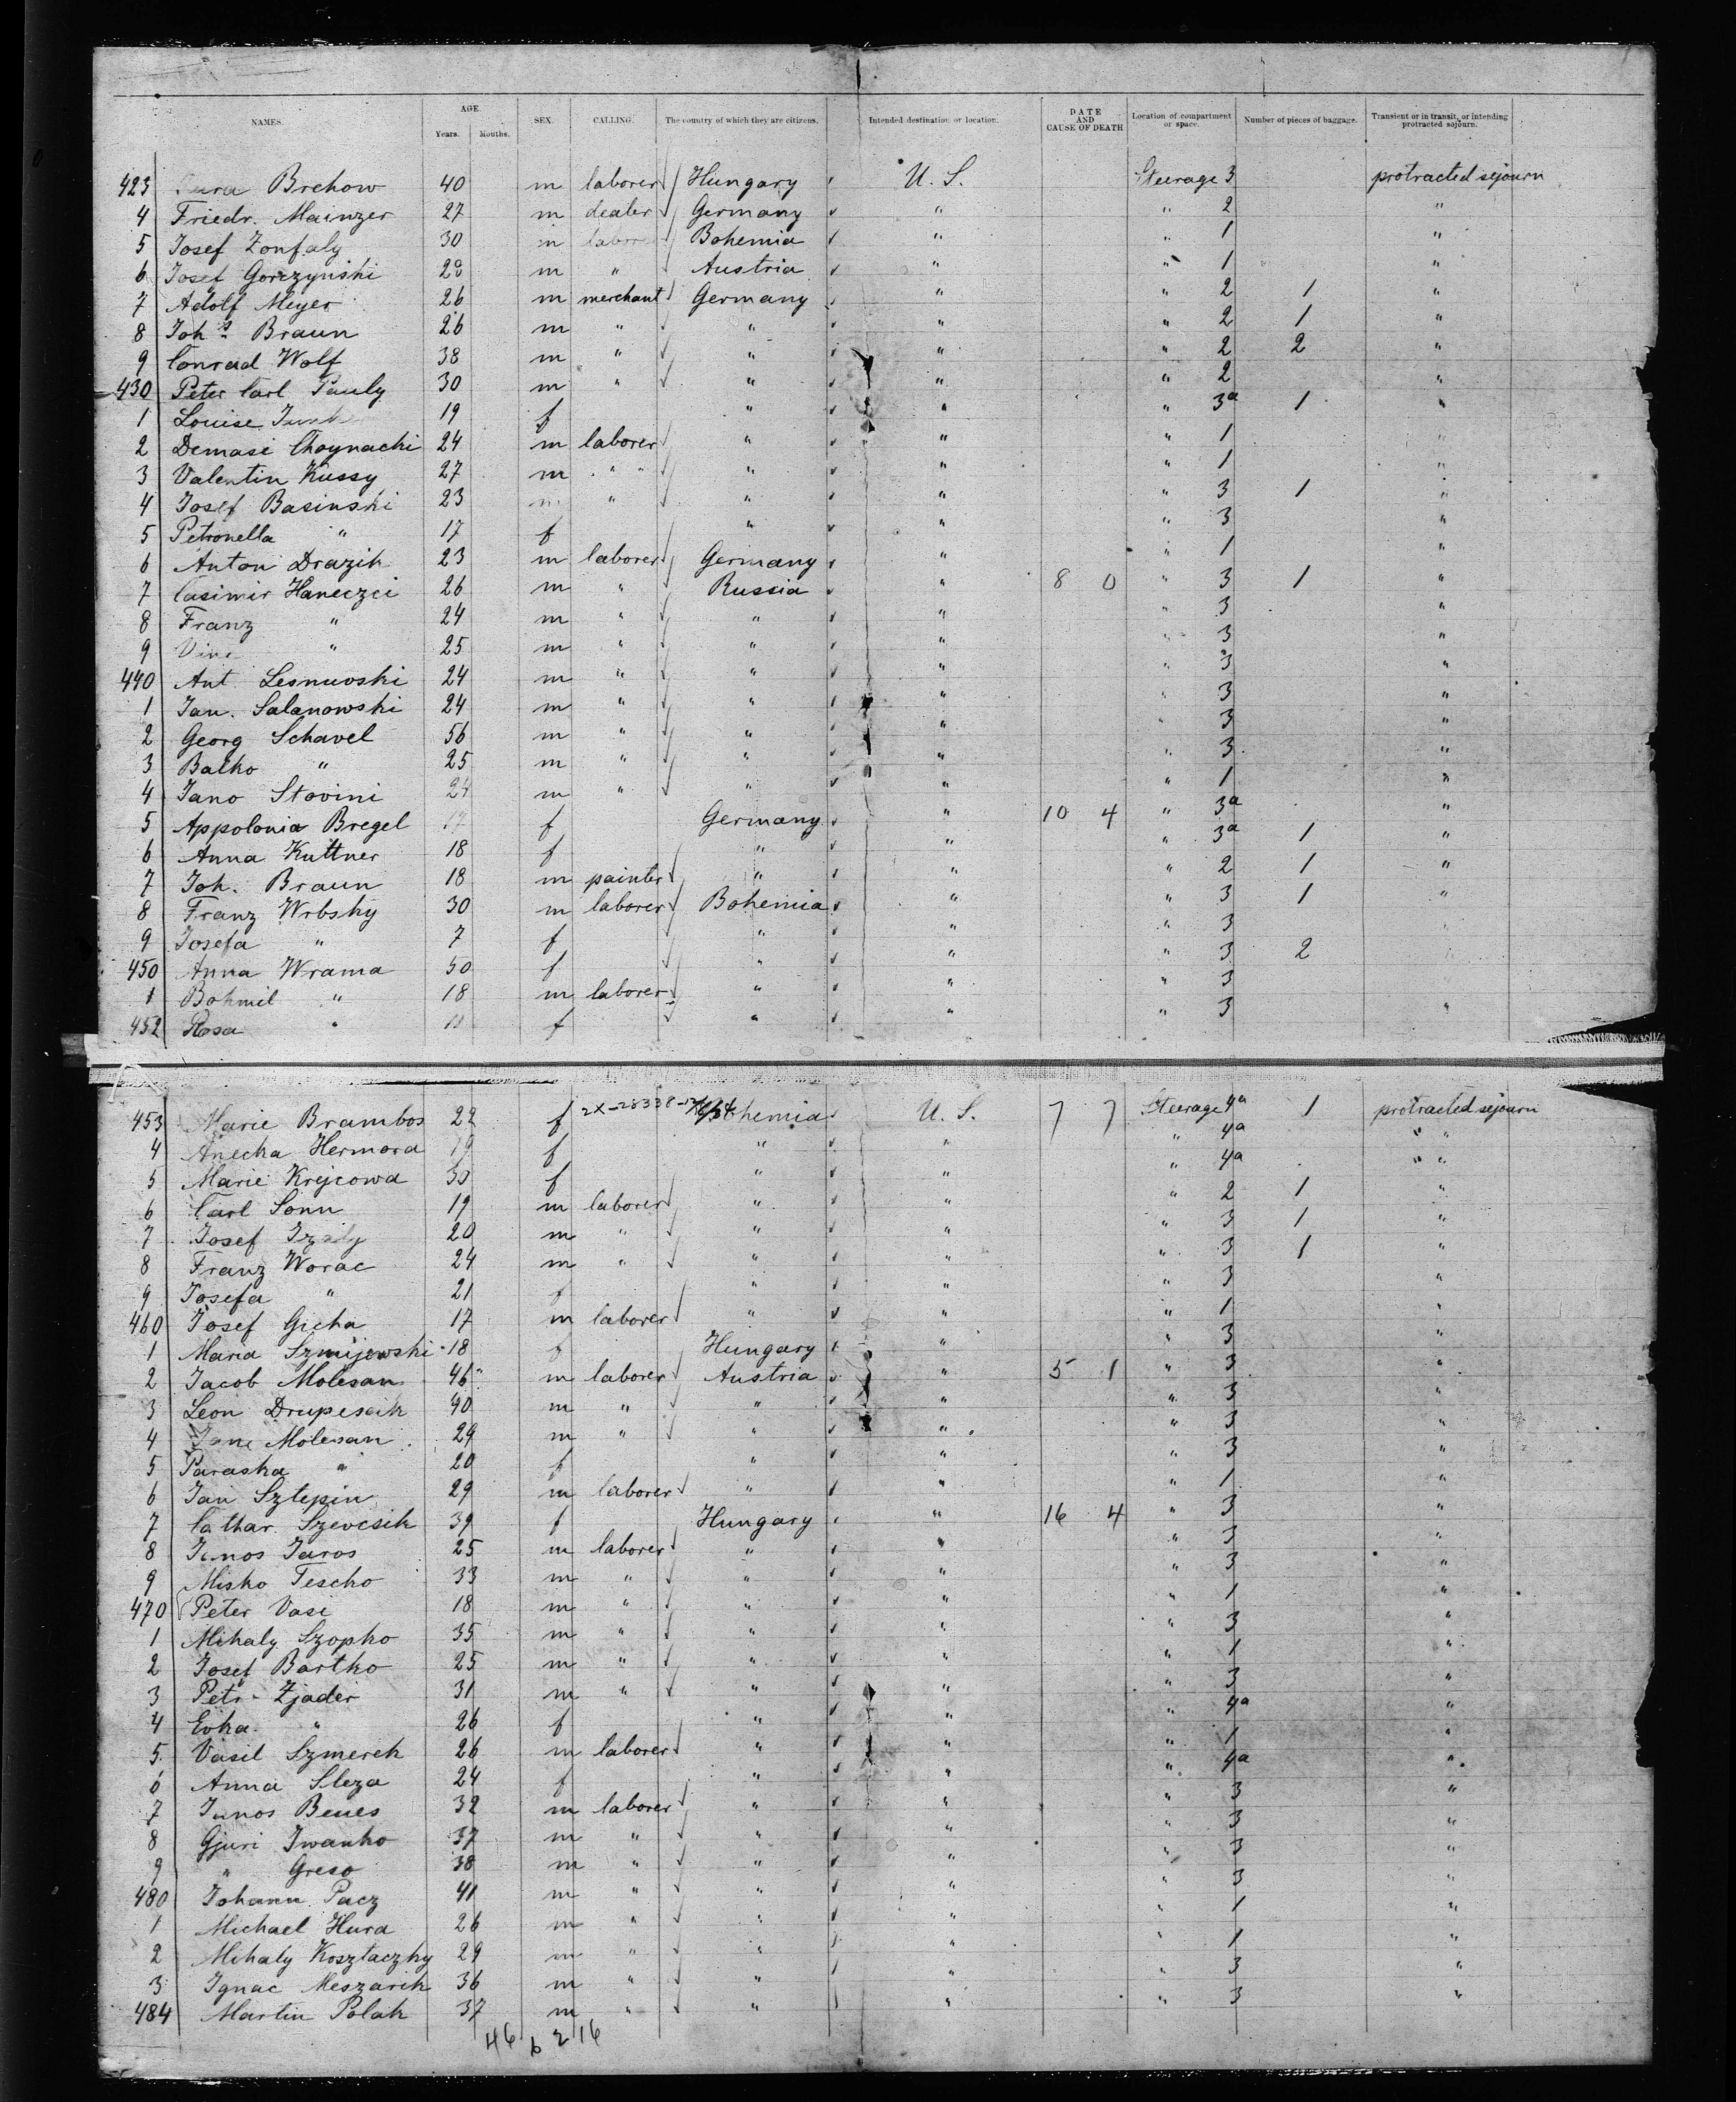 NAMES. AGE. Years. Months. SEX. CALLING. The country of which they are citizens. Intended destination or location. DATE AND CAUSE OF DEATH Location of compartment or space. Number of pieces of baggage. Transient or in transit, or intending protracted sojourn.
423 Brehow 40 m laborer Hungary U. S. Steerage 3 protracted sejourn
4 Friedr. Mainzer 27 m dealer Germany " " 2 "
5 Josef Zonfaly 30 m laborer Bohemia " " 1 "
6 Josef Gorczynski 28 m " Austria " " 1 "
7 Adolf Meyer 26 m merchant Germany " " 2 1 "
8 Johs Braun 26 m " " " " 2 1 "
9 Conrad Wolf 38 m " " " " 2 2 "
430 Peter Carl Pauly 30 m " " " " 2 "
1 Louise 19 f " " " 3a 1 "
2 Demasi Choynacki 24 m laborer " " " 1 "
3 Valentin Kussy 27 m " " " " " 1 "
4 Josef Basinski 23 m " " " " 3 1 "
5 Petronella " 17 f " " " 3 "
6 Anton Drazik 23 m laborer Germany " " 1 "
7 Casimir Haneczei 26 m " Russia " 8 0 " 3 1 "
8 Franz " 24 m " " " " 3 "
9 " 25 m " " " " 3 "
440 Ant. Lesnuoski 24 m " " " " 3 "
1 Jan. Salanowski 24 m " " " " 3 "
2 Georg Schavel 56 m " " " " 3 "
3 Balko " 25 m " " " " 3 "
4 Jano Stovini 24 m " " " " 1 "
5 Appolonia Bregel 17 f Germany " 10 4 " 3a "
6 Anna Kuttner 18 f " " " 3a 1 "
7 Joh. Braun 18 m painter " " " 2 1 "
8 Franz Wrbsky 30 m laborer Bohemia " " 3 1 "
9 Josefa " 7 f " " " 3
450 Anna Wrama 50 f " " " 3 2
1 Bohmil " 18 m laborer " " " 3
452 Rosa " 11 f " " " 3 "
453 Marie Brambos 22 f 2X-28338- Bohemia U. S. 7 7 Steerage 4a 1 protracted sejourn
4 Anecka Hermova 19 f " " " 4a " "
5 Marie Krejcowa 30 f " " " 4a " "
6 Carl Sonn 19 m laborer " " " 2 1 "
7 Josef 20 m " " " " 3 1 "
8 Franz Worac 24 m " " " " 3 1 "
9 Josefa " 21 f " " " 3 "
460 Josef Gicha 17 m laborer " " " 1 "
1 Maria Szmijewski 18 f Hungary " " 3 "
2 Jacob Molesan 46 m laborer Austria " 5 1 " 3 "
3 Leon Drupesak 40 m " " " " 3 "
4 Molesan 29 m " " " " 3 "
5 Paraska " 20 f " " " 3 "
6 Jan Sztepin 29 m laborer " " " 1 "
7 Cathar. Szevcsik 39 f Hungary " 16 4 " 3 "
8 Janos Jaros 25 m laborer " " " 3 "
9 Misko Tescho 33 m " " " " 3 "
470 Peter Vasi 18 m " " " " 1 "
1 Mihaly Szopko 35 m " " " " 3 "
2 Josef Bartko 25 m " " " " 1 "
3 Petr. Zjader 31 m " " " " 3 "
4 Evka " 26 f " " " 4a "
5 Vasil Szmerek 26 m laborer " " " 1 "
6 Anna Sleza 24 f " " " 4a "
7 Janos Benes 32 m laborer " " " 3 "
8 Gjuri Iwanko 37 m " " " " 3 "
9 " Greso 38 m " " " " 3 "
480 Johann Pacz 41 m " " " " 3 "
1 Michael Hura 26 m " " " " 1 "
2 Mihaly Kosztaczky 29 m " " " " 1 "
3 Ignac Meszarik 36 m " " " " 3 "
484 Martin Polak 37 m " " " " 3 "
46 6 2 16